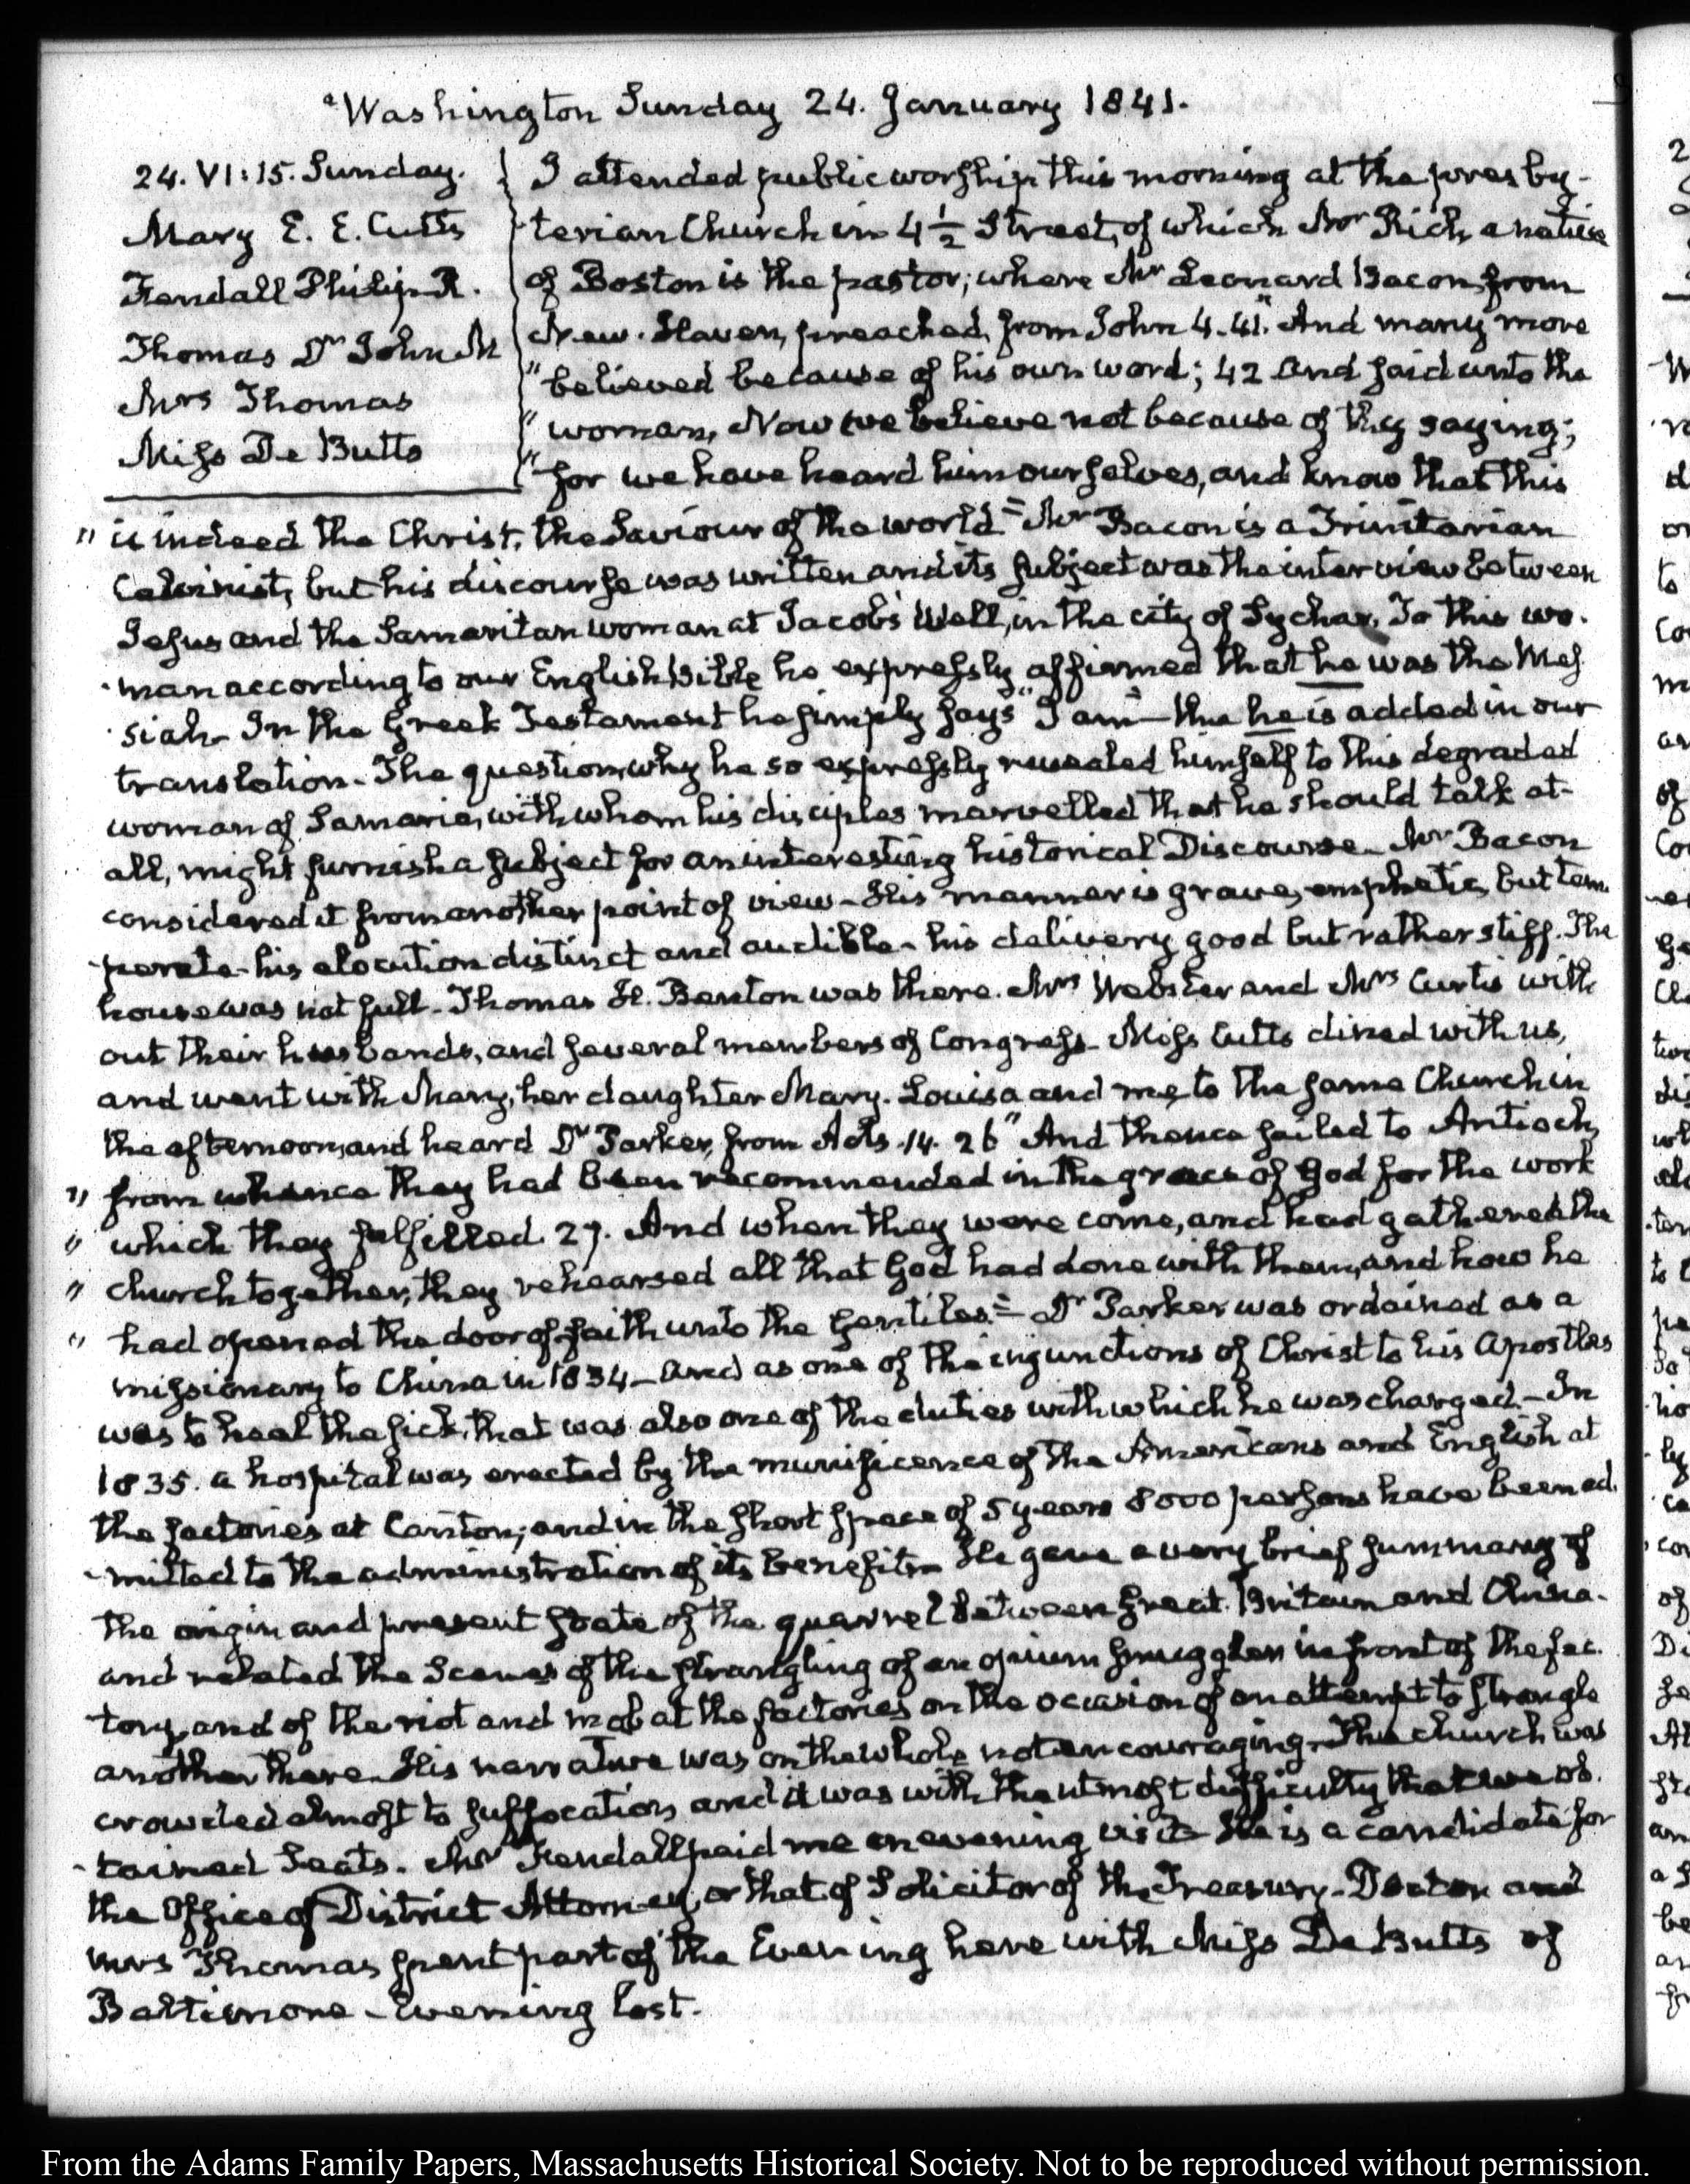 Washington Sunday 24. January 1841.
24. VI:15. Sunday.
Mary E. E. Cutts
Fendall Philip R.
Thomas Dr John M
Mrs Thomas
Miss De Butts
I attended public worship this morning at the presby-
terian Church in 4 1/2 Street, of which Mr Rich, a native
of Boston is the pastor; where Mr Leonard Bacon, from
New-Haven, preached, from John 4.41. "And many more
" believed because of his own word; 42 and said unto the
" woman, Now we believe not because of thy saying;
" for we have heard him ourselves, and know that this
" is indeed the Christ, the Saviour of the world"—Mr Bacon is a Trinitarian
Calvinist, but his discourse was written and its subject was the interview between
Jesus and the Samaritan woman at Jacob's Well, in the city of Sychar. To this wo-
man according to our English Bible he expressly affirmed that he was the Mes-
siah. In the Greek Testament he simply says "I am"—the he is added in our
translation. The question why he so expressly revealed himself to this degraded
woman of Samaria, with whom his disciples marvelled that he should talk at
all, might furnish a subject for an interesting historical Discourse. Mr Bacon
considered it from another point of view—His manner is grave, emphatic, but tem-
perate—his elocution distinct and audible—his delivery good but rather stiff. The
house was not full. Thomas H. Benton was there. Mrs Webster and Mrs Curtis with
out their husbands, and several members of Congress—Miss Cutts dined with us,
and went with Mary, her daughter Mary-Louisa and me to the same Church in
the afternoon, and heard Dr Parker, from Acts.14.26 "And thence sailed to Antioch,
" from whence they had been recommended in the grace of God for the work
" which they fulfilled. 27. And when they were come, and had gathered the
" church together, they rehearsed all that God had done with them, and how he
" had opened the door of faith unto the Gentiles."—Dr Parker was ordained as a
missionary to China in 1834—and as one of the injunctions of Christ to his Apostles
was to heal the sick, that was also one of the duties with which he was charged.—In
1835. a hospital was erected by the munificence of the Americans and English at
the factories at Canton; and in the short space of 5 years 8000 persons have been ad-
mitted to the administration of its benefits. He gave a very brief summary of
the origin and present state of the quarrel between Great-Britain and China-
and related the Scenes of the strangling of an opium smuggler in front of the fac-
tory, and of the riot and mob at the factories on the occasion of an attempt to strangle
another there. His narrative was on the whole not encouraging. The church was
crowded almost to suffocation, and it was with the utmost difficulty that we ob-
tained Seats. Mr Fendall paid me an evening visit—He is a candidate for
the Office of District Attorney, or that of Solicitor of the Treasury. Doctor and
Mrs Thomas spent part of the Evening here with Miss De Butts of
Baltimore—Evening lost.
From the Adams Family Papers, Massachusetts Historical Society. Not to be reproduced without permission.